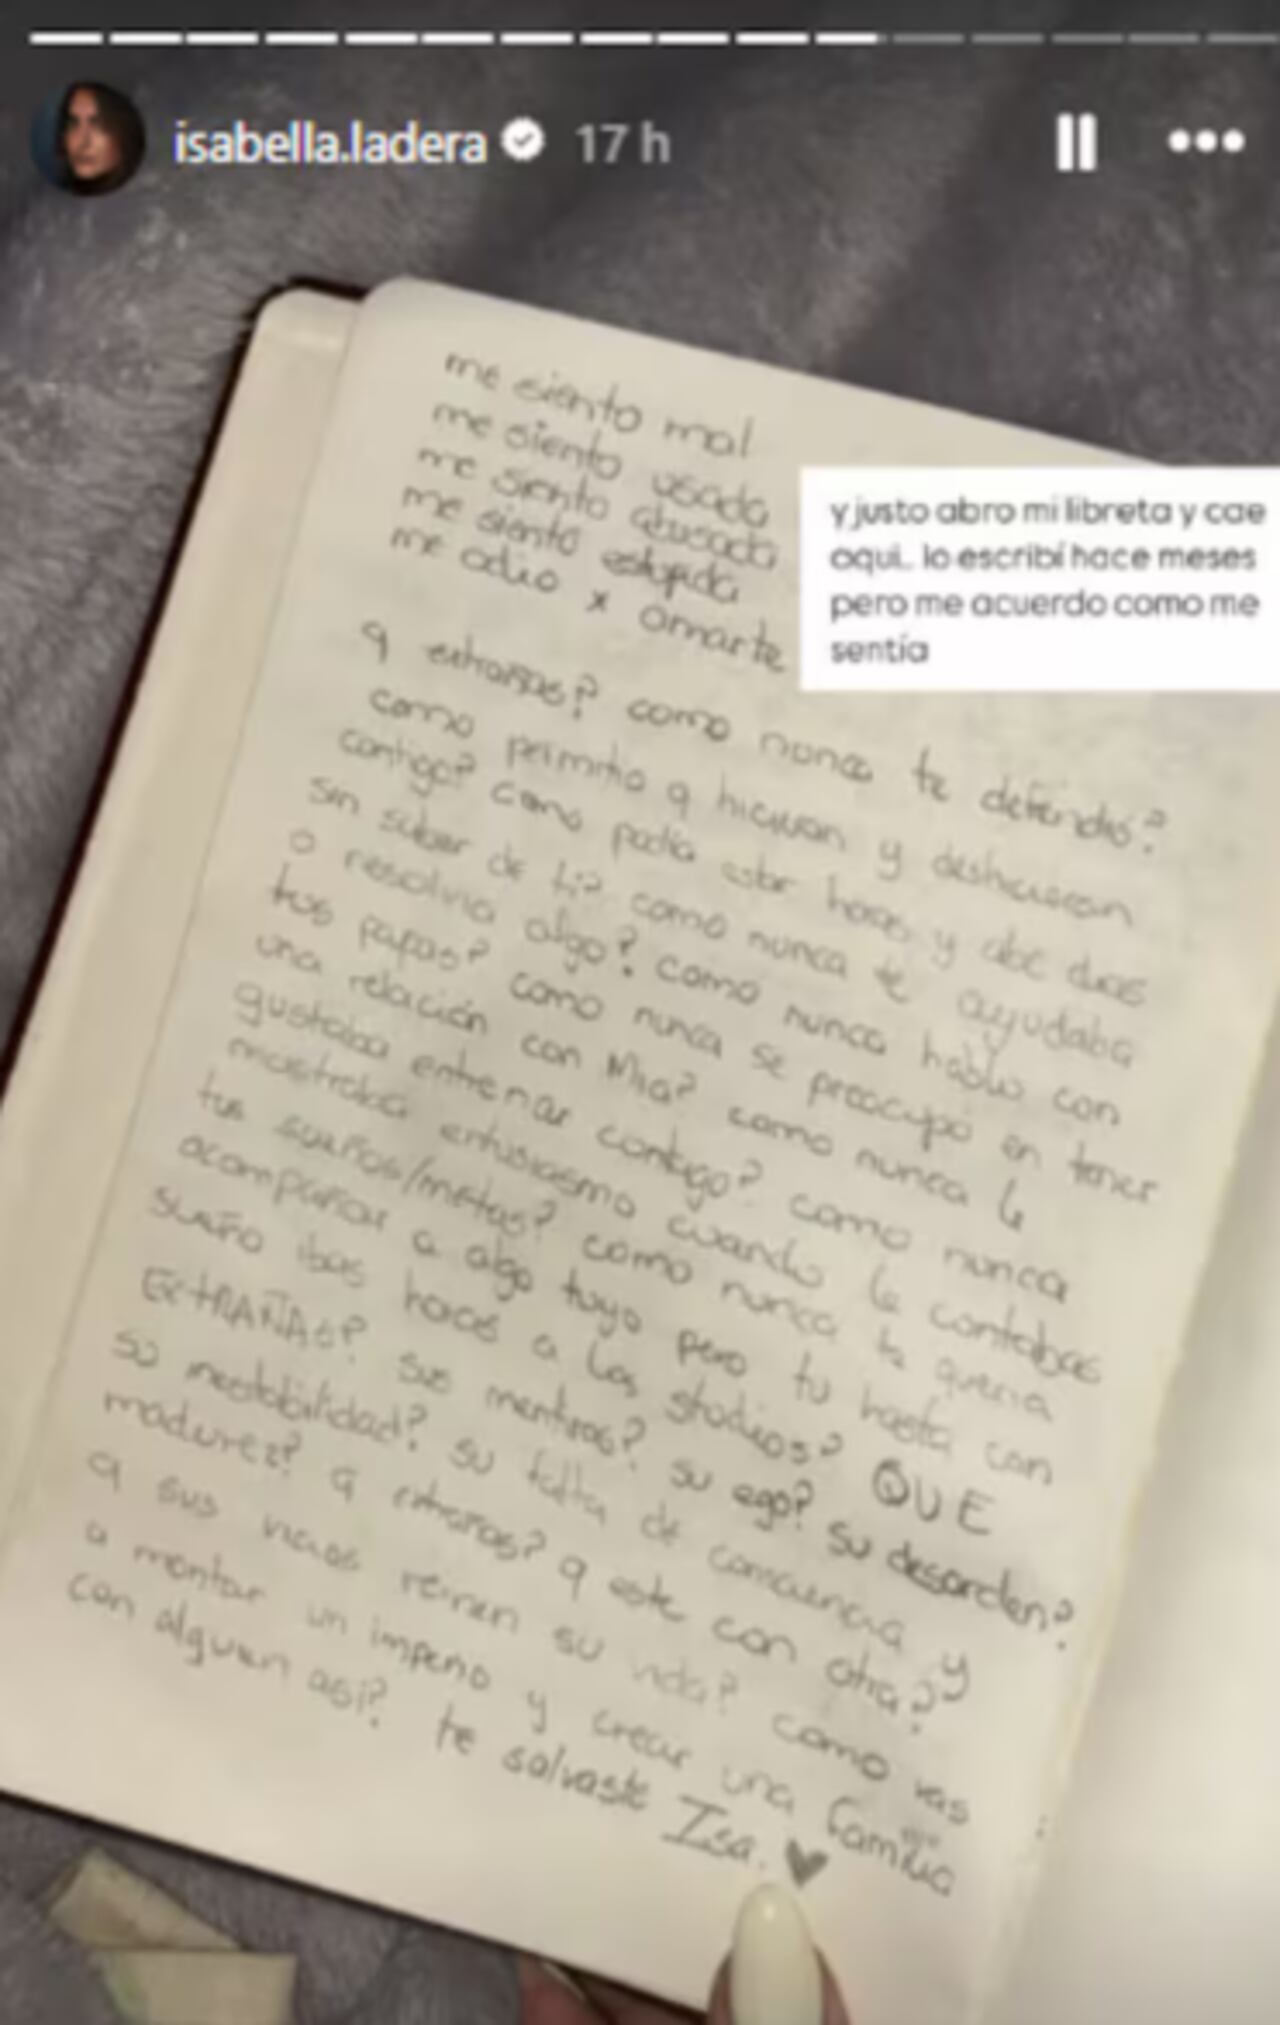 isabella.ladera 17 h
y justo abro mi libreta y cae
aqui.. lo escribí hace meses
pero me acuerdo como me
sentía
me siento mal
me siento usada
me siento abusada
me siento estupida
me odio x amarte
q extrañas? como nunca te defendió?
como permitio q hicieran y deshicieran
contigo? como podia estar horas y
sin saber de ti? como nunca te ayudaba
o resolvia algo? como nunca hablo con
tus papas? como nunca se preocupo en tener
una relación con Mia? como nunca le
gustaba entrenar contigo? como nunca
mostraba entusiasmo cuando le contabas
tus sueños/metas? como nunca te queria
acompañar a algo tuyo pero tu hasta con
sueño ibas a los studios? QUE
EXTRAÑAS? sus mentiras? su ego? su desorden?
su inestabilidad? su falta de conciencia y
madurez? q extrañas? q este con otra?
q sus vicios reinen su vida? como vas
a montar un imperio y crear una familia
con alguien asi? te salvaste Isa.